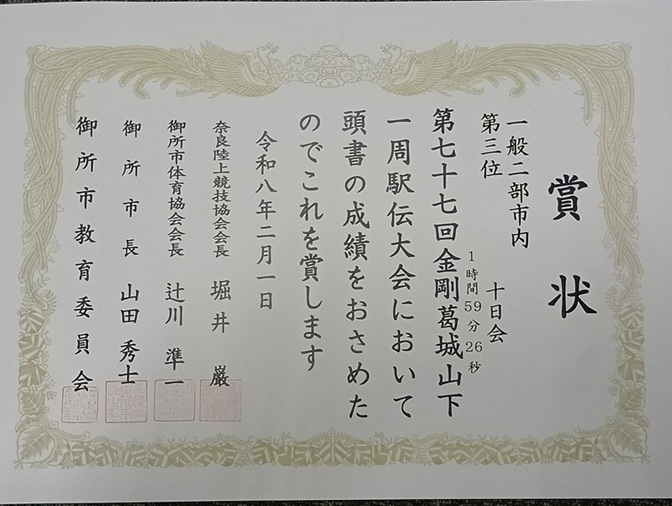 賞状
一般二部市内
第三位
十日会
1時間59分26秒
第七十七回金剛葛城山下
一周駅伝大会において
頭書の成績をおさめた
のでこれを賞します
令和八年二月一日
奈良陸上競技協会会長 堀井 巌
御所市体育協会会長 辻川 準一
御所市長 山田 秀士
御所市教育委員会